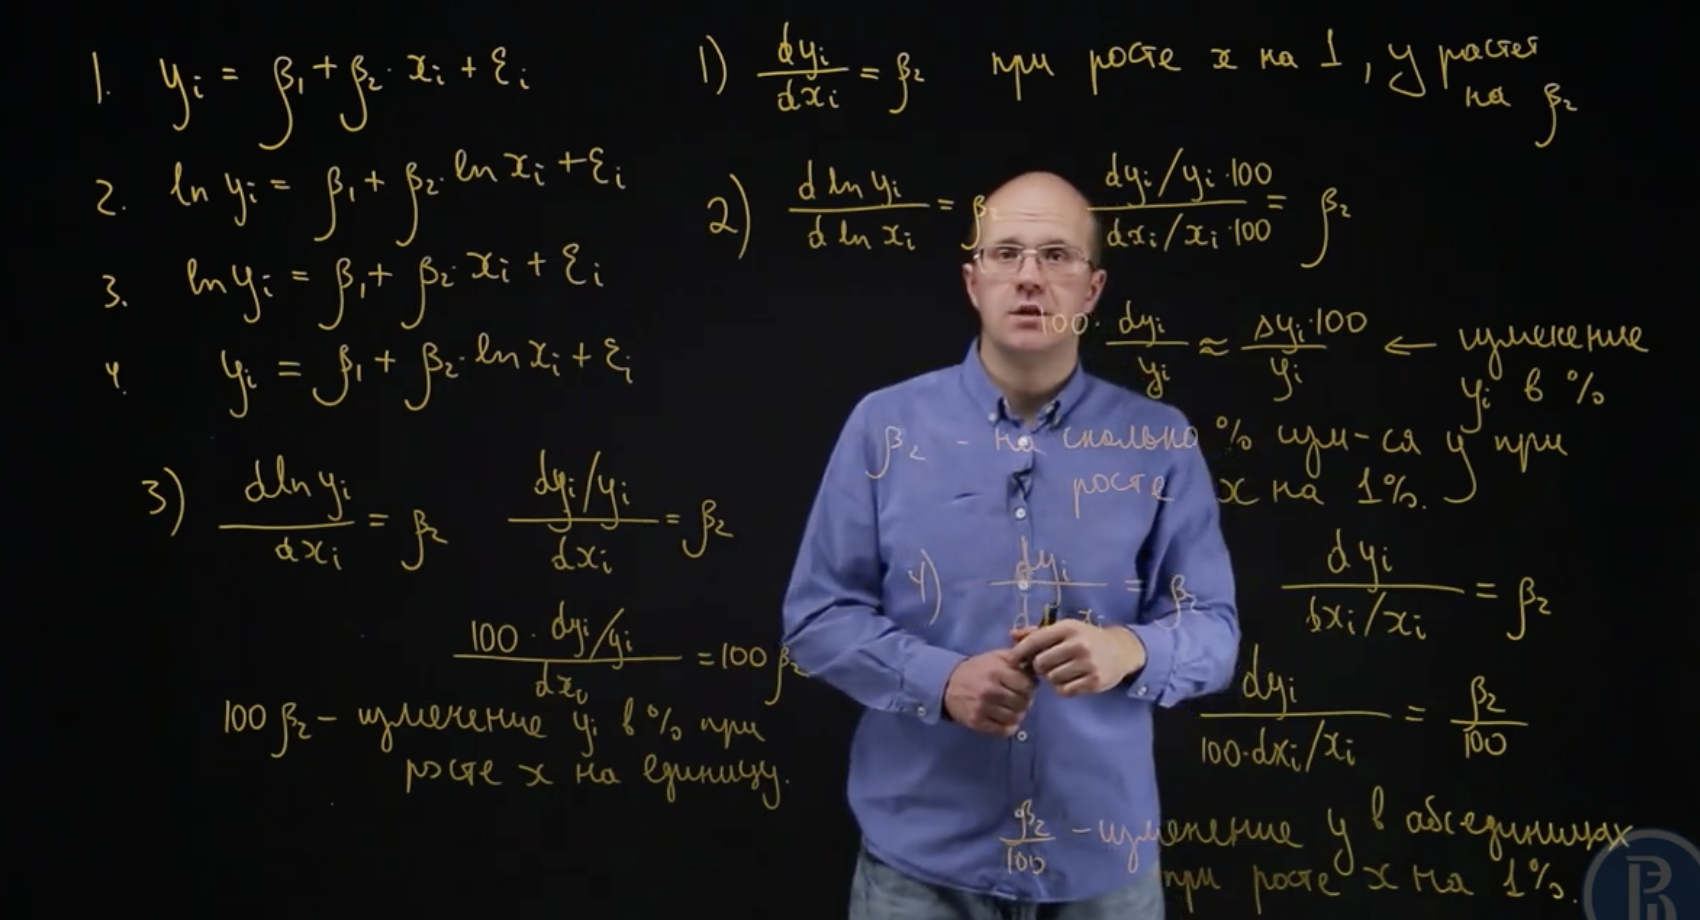 1. yᵢ = β₁ + β₂·xᵢ + εᵢ
2. ln yᵢ = β₁ + β₂·ln xᵢ + εᵢ
3. ln yᵢ = β₁ + β₂·xᵢ + εᵢ
4. yᵢ = β₁ + β₂·ln xᵢ + εᵢ
1) dyᵢ/dxᵢ = β₂ при росте x на 1, y растет
на β₂
2) d ln yᵢ / d ln xᵢ = β₂ dyᵢ/yᵢ·100 / dxᵢ/xᵢ·100 = β₂
100· dyᵢ/yᵢ ≈ Δyᵢ·100/yᵢ ← изменение
yᵢ в %
β₂ - на сколько % изм-ся y при
росте x на 1%.
3) d ln yᵢ / dxᵢ = β₂ dyᵢ/yᵢ / dxᵢ = β₂
100· dyᵢ/yᵢ / dxᵢ = 100 β₂
100 β₂ – изменение yᵢ в % при
росте x на единицу.
4) dyᵢ / d ln xᵢ = β₂ dyᵢ / dxᵢ/xᵢ = β₂
dyᵢ / 100·dxᵢ/xᵢ = β₂/100
β₂/100 – изменение y в абс единицах
при росте x на 1%.